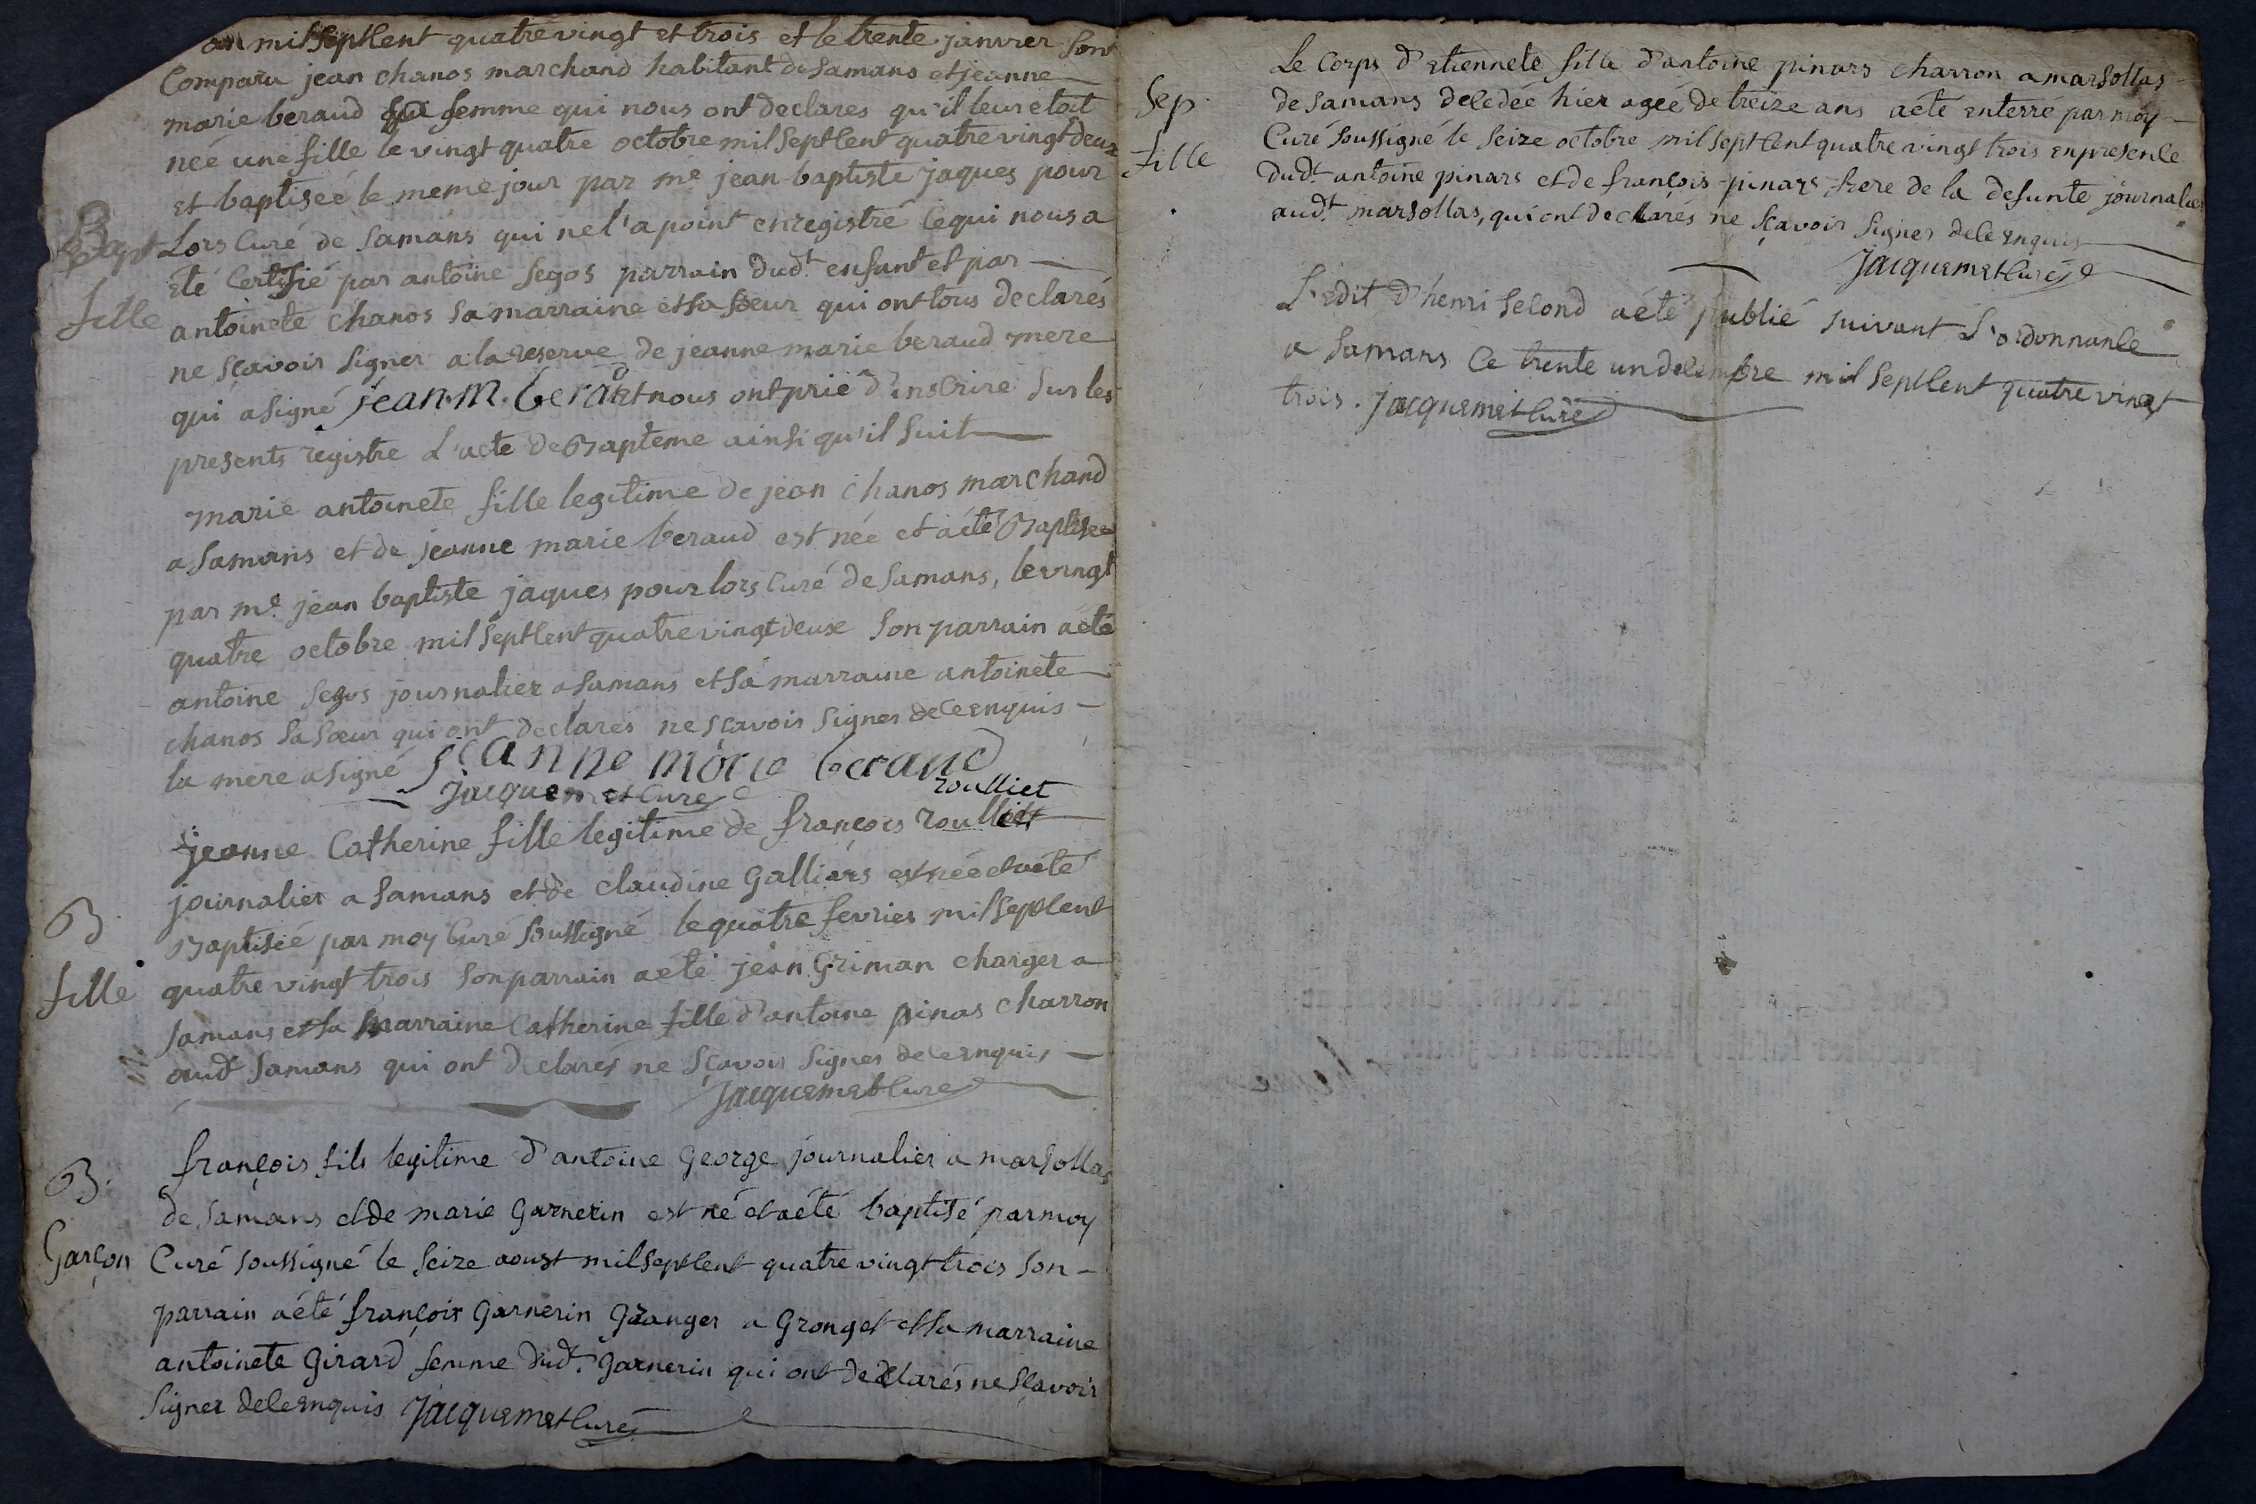 an mil septcent quatre vingt et trois et le trente janvier sont
Comparu jean chanos marchand habitant de Samans et jeanne
marie beraud sa femme qui nous ont declares qu'il leur etoit
neé une fille le vingt quatre octobre mil septcent quatre vingt deux
et baptiseé le meme jour par me jean baptiste jaques pour
Bapt
Lors Curé de Samans qui ne l'a point enregistré Ce qui nous a
eté Certifié par antoine Segos parrain dudt. enfant et par
fille
antoinete Chanos Sa marraine et sa Soeur qui ont tous declarés
ne sçavoir Signer a la reserve de jeanne marie beraud mere
qui a signé jean.m. beraud et nous ont prié d'inscrire Sur les
presents registre L'acte de Bapteme ainsi qu'il Suit
marie antoinete fille legitime de jean Chanos marchand
a Samans et de jeanne marie beraud est née et a eté Baptisée
par me. jean baptiste jaques pour lors Curé de Samans, le vingt
quatre octobre mil septcent quatre vingt deux Son parrain a eté
antoine Segos journalier a Samans et sa marraine antoinete
chanos Sa Soeur qui ont declarés ne sçavoir Signer de Ce enquis
la mere a signé jeanne marie beraud
jacquemet Curé
roulliet
jeanne Catherine fille legitime de françois
journalier a Samans et de Claudine Galliars est neé et a eté
B.
Baptiseé par moy Curé Soussigné le quatre fevrier mil septcent
fille
quatre vingt trois son parrain a eté jean Griman charger a
Samans et sa marraine Catherine fille d'antoine pinas charron
audt Samans qui ont declarés ne sçavoir Signer de Ce enquis
jacquemet Curé
françois fils legitime d'antoine George journalier a marsollas
B.
de Samans et de marie Garnerin est né et a eté baptisé par moy
Garçon
Curé soussigné le Seize aoust mil septcent quatre vingt trois son
parrain a eté françois Garnerin Granger a Gronget et sa marraine
antoinete Girard femme dudt. Garnerin qui ont declarés ne sçavoir
Signer de Ce enquis jacquemet Curé
Le Corps d'etiennete fille d'antoine pinars charron a marsollas
Sep.
de Samans decedeé hier ageé de treize ans a eté enterré par moy
fille
Curé soussigné le Seize octobre mil septcent quatre vingt trois en presence
dudt. antoine pinars et de françois pinars frere de la defunte journalier
audt. marsollas, qui ont declarés ne sçavoir Signer de Ce enquis
jacquemet Curé
L'edit d'henri Second a eté publié suivant L'ordonnance
a Samans Ce trente un decembre mil septcent quatre vingt
trois. jacquemet Curé